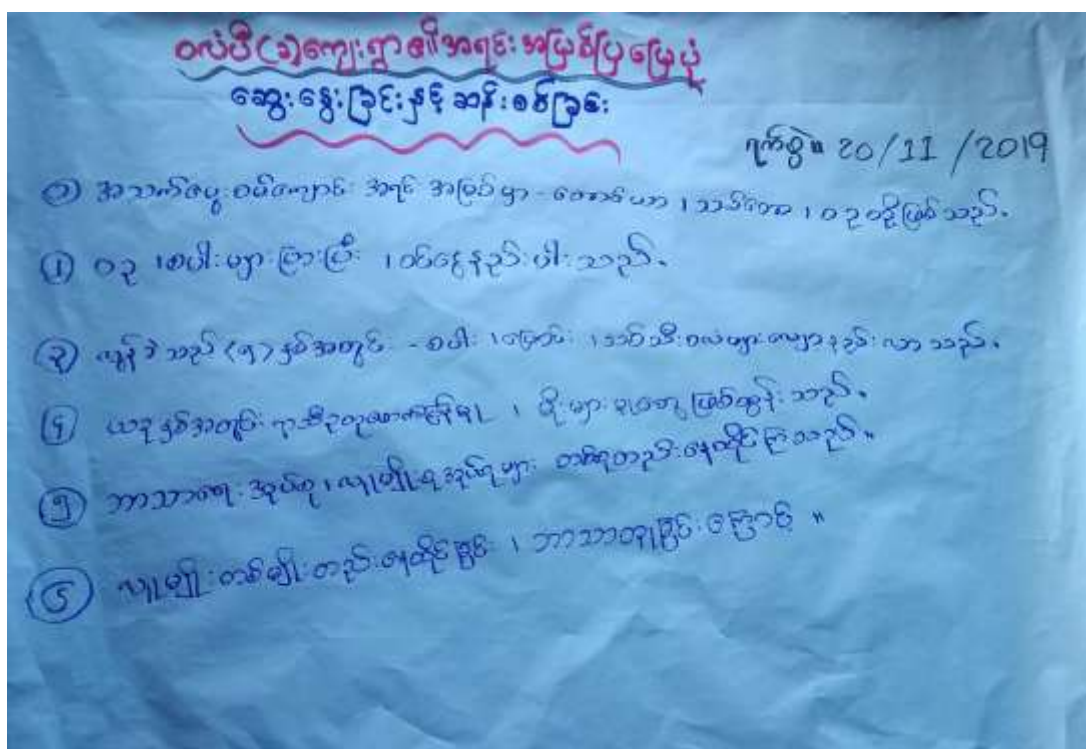 ဝလံပီ(၁)ကျေးရွာ၏အရင်းအမြစ်ပြမြေပုံ
ဆွေးနွေးခြင်းနှင့် ဆန်းစစ်ခြင်း
ရက်စွဲ။ 20/11/2019
၁) အသက်မွေးဝမ်းကျောင်း အရင်းအမြစ်မှာ - တောင်ယာ ၊ သစ်တော ၊ ဝဥ ဖြစ်သည်.
၂ ဝဥ ၊ စပါးများ ၊ နည်းပါးသည်.
၃ လွန်ခဲ့သည် (၅) နှစ်အတွင်း - စပါး ၊ ပြောင်း ၊ သစ်သီးဝလံများလျော့နည်းလာသည်.
၄ ယခုနှစ်အတွင်းရာသီဥတု ၊ ပိုးများ ဖြစ်ထွန်းသည်.
၅ ဘာသာရေးအုပ်စု ၊ လူမျိုးစုအုပ်စုများ တစ်စုတည်းနေထိုင်ကြသည်။
၆ လူမျိုးတစ်မျိုးတည်းနေထိုင်ခြင်း ၊ ဘာသာတူခြင်းကြောင့် ။